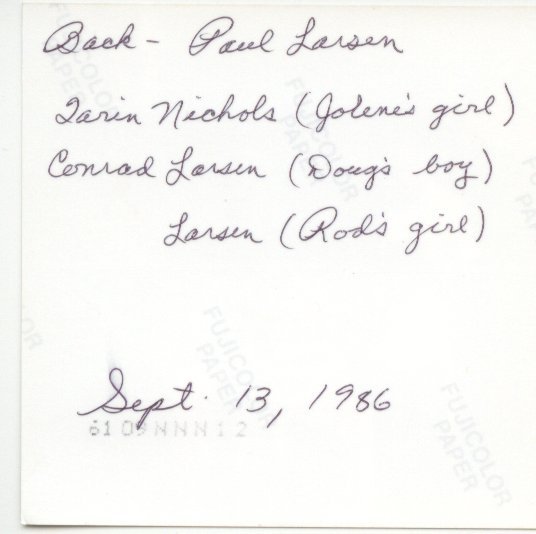 Back - Paul Larsen
Tarin Nichols (Jolene's girl)
Conrad Larsen (Doug's boy)
Larsen (Rod's girl)
Sept. 13, 1986
61 09 NNN 1 2
FUJICOLOR
PAPER
FUJICOLOR
PAPER
FUJICOLOR
PAPER
FUJICOLOR
PAPER